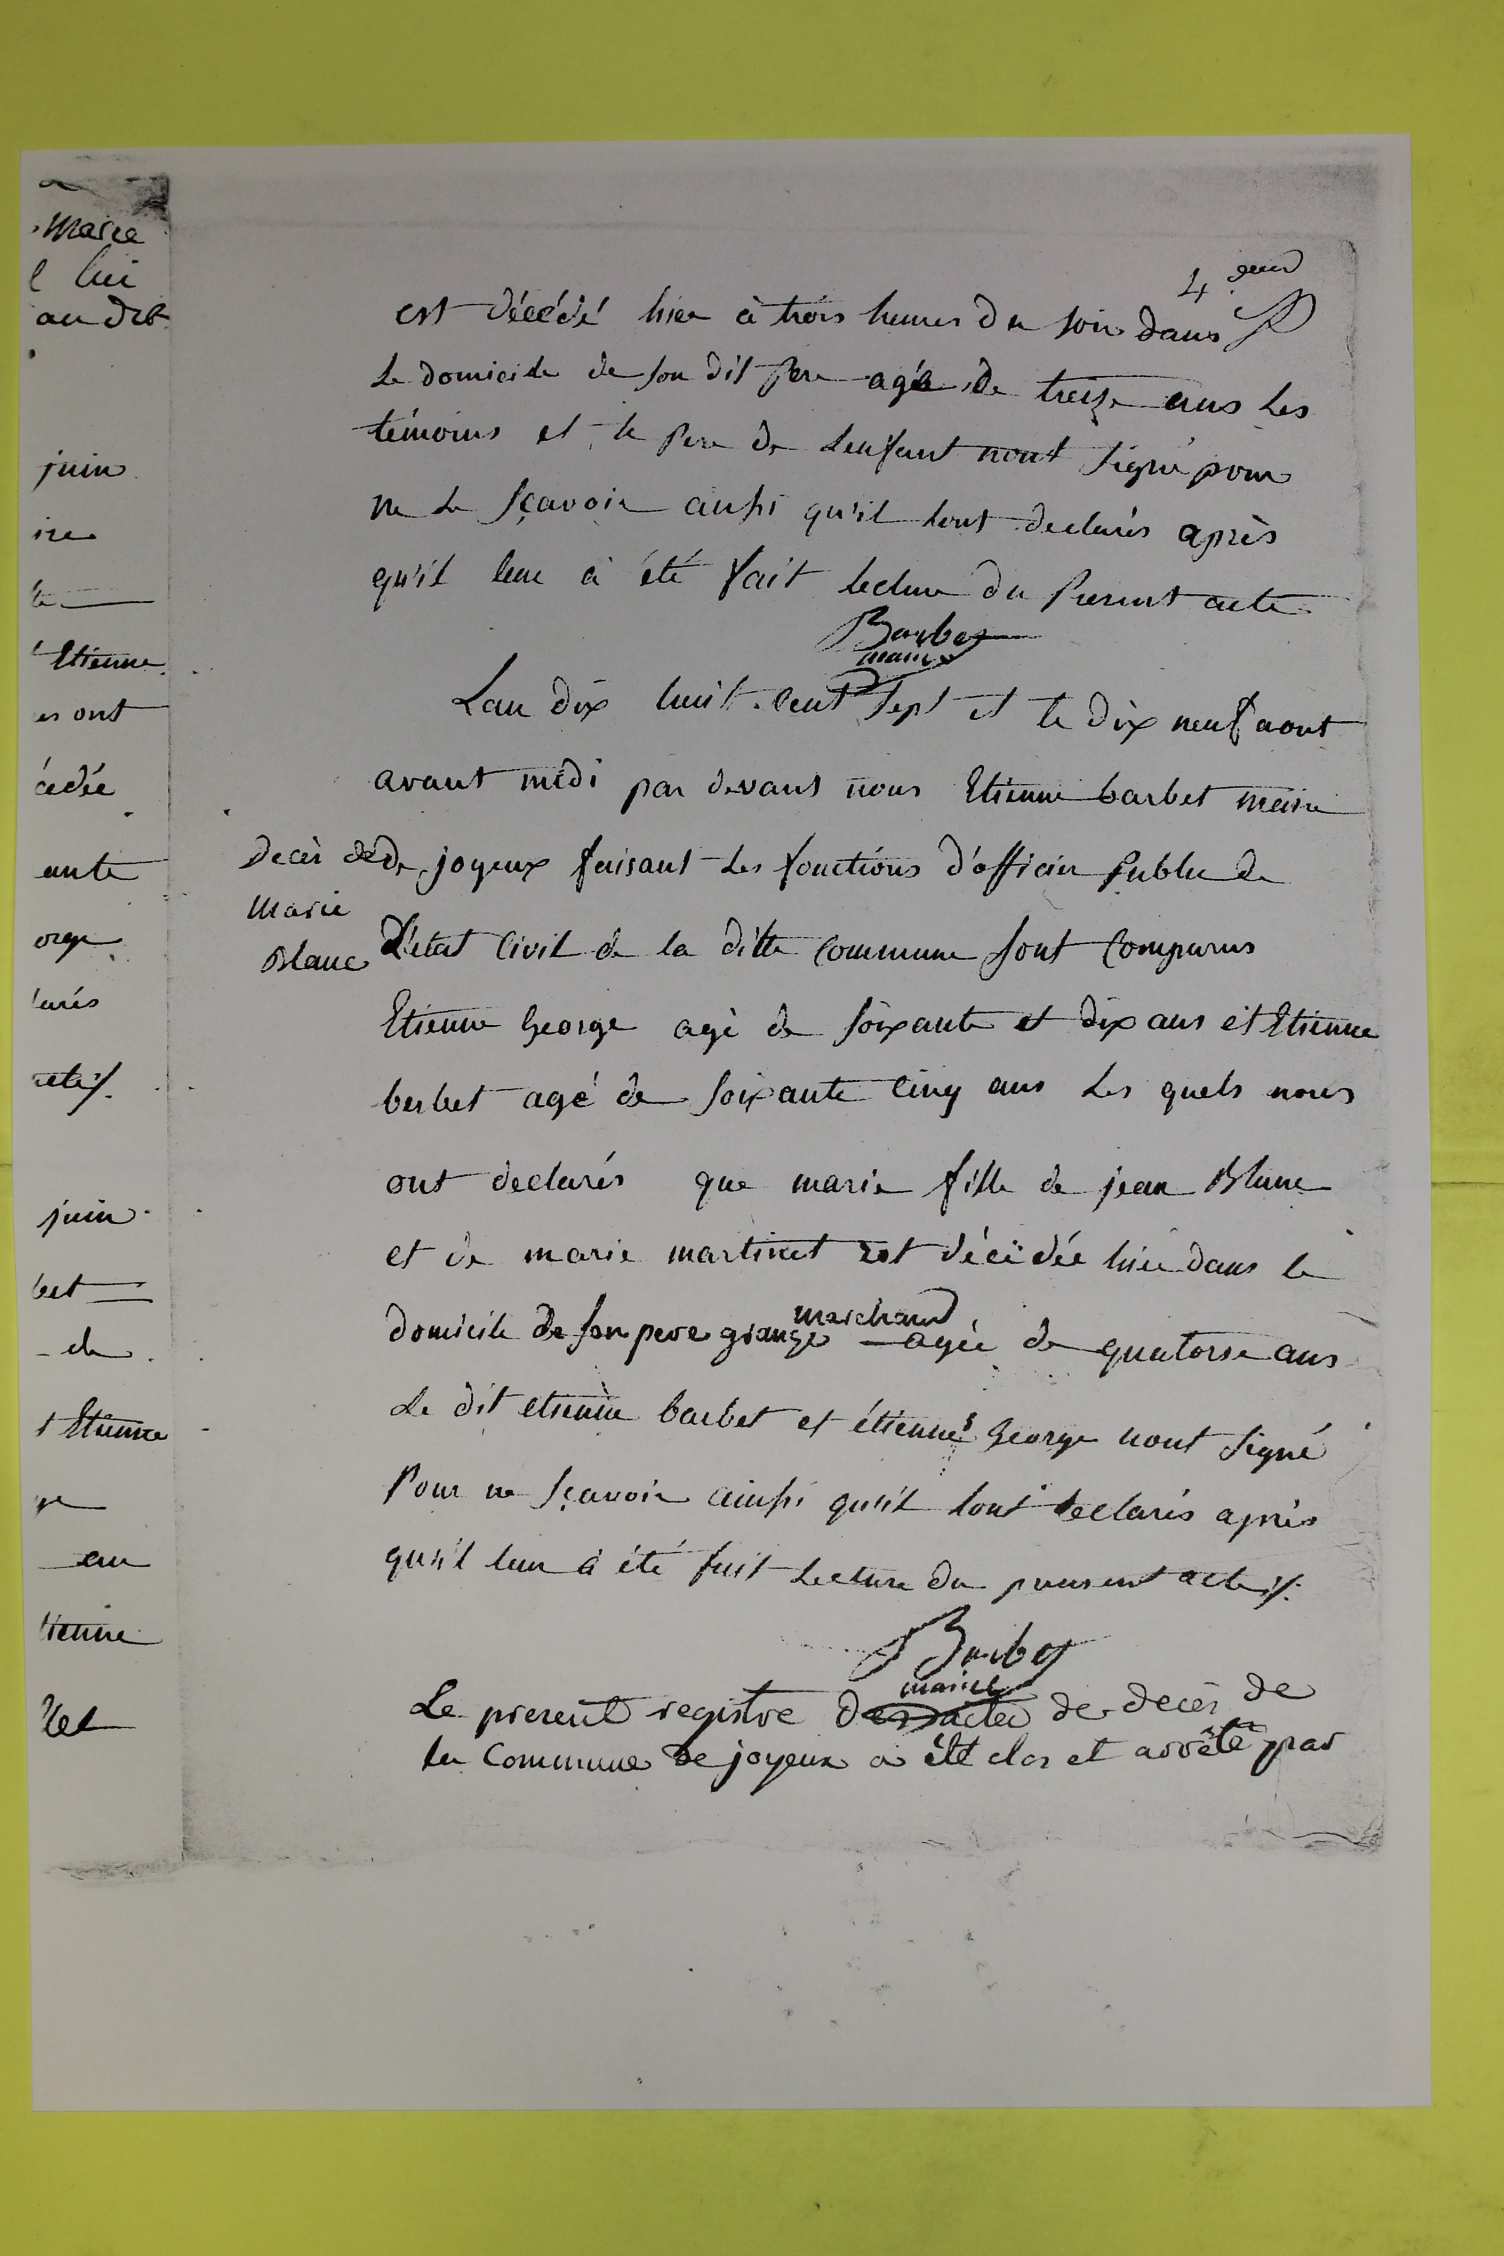 Marie
lui
au dit
juin
Etienne
es ont
cédée
ante
orge
larés
juin
bet
de
t Etienne
au
tienne
4
est décédé hier à trois heures du soir dans
Le domicile de son dit Pere agée de treize ans Les
témoins et le Pere de Lenfant nont signé pour
ne Le sçavoir ainsi qu'il lont declarés après
qu'il leur à été fait lecture du Present acte
Barbet
maire
Lan dix huit cent sept et le dix neuf aout
avant midi par devant nous Etienne barbet maire
decès de
Marie
Blanc
de joyeux faisant Les fonctions d'officier Public de
L'etat Civil de la ditte Commune sont Comparus
Etienne George agé de soixante et dix ans et Etienne
berbet agé de soixante Cinq ans Les quels nous
ont declarés que marie fille de jean Blanc
et de marie martinet est décédée hier dans le
domicile de son pere granger marchand agée de quatorse ans
Le dit etienne barbet et étienne George nont signé
Pour ne sçavoir ainsi qu'il lont declarés après
qu'il leur à été fait Lecture du present acte ./.
Barbet
maire
Le present registre des actes de decès de
la Commune de joyeux a été clos et arrêté par